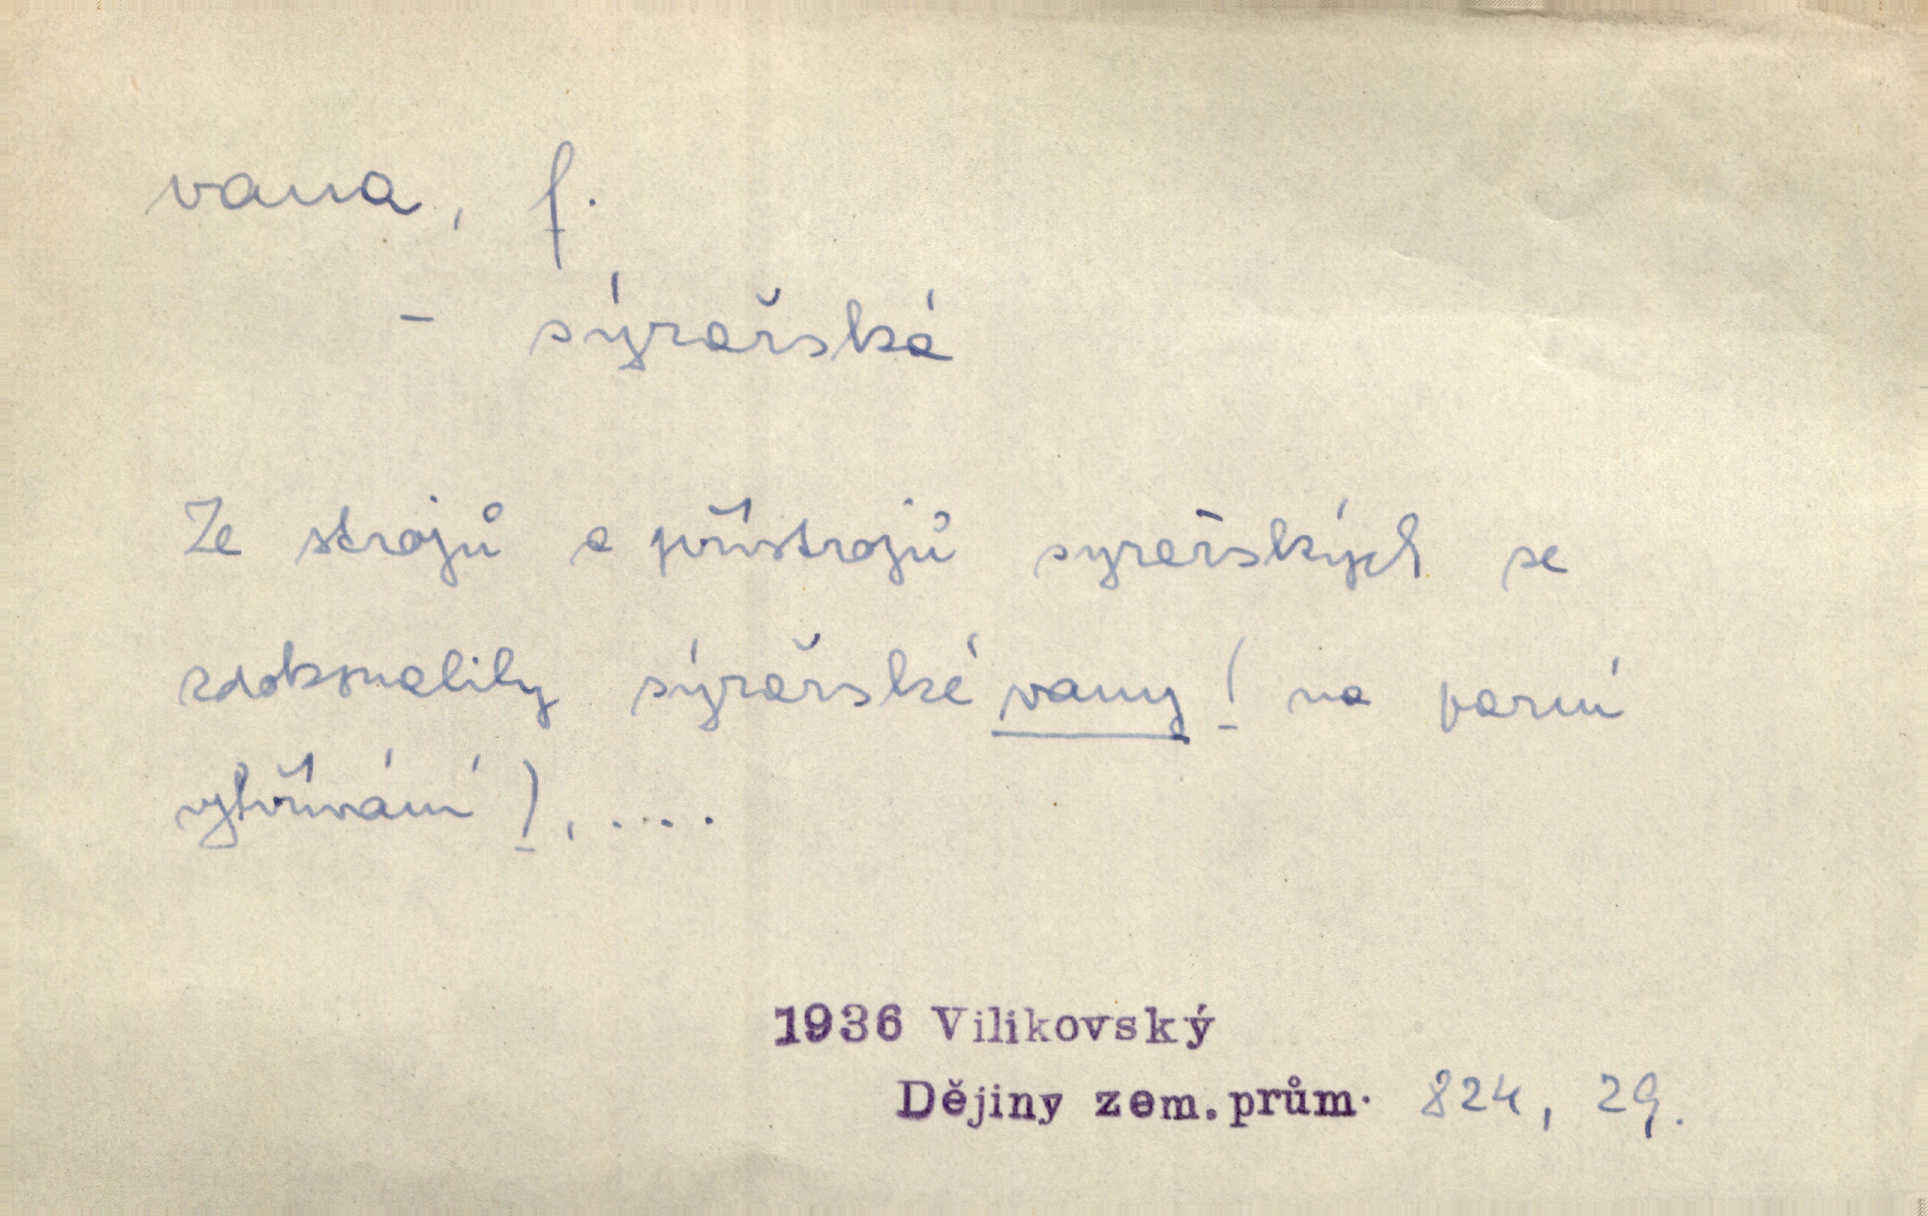 vana, f.
- sýrařská
Ze strojů a přístrojů syrařských se
zdokonalily sýrařské vany ( na parní
vytřívání ), ....
1936 Vilikovský
Dějiny zem. prům. 824, 29.